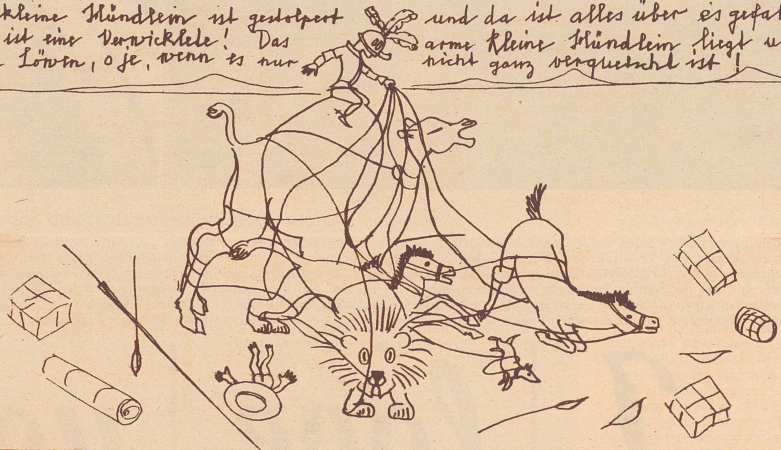 kleine Hündlein ist gestolpert und da ist alles über es gefal
ist eine Verwicklete! Das arme kleine Hündlein liegt u
Löwen, o je, wenn es nur nicht ganz verquetscht ist!